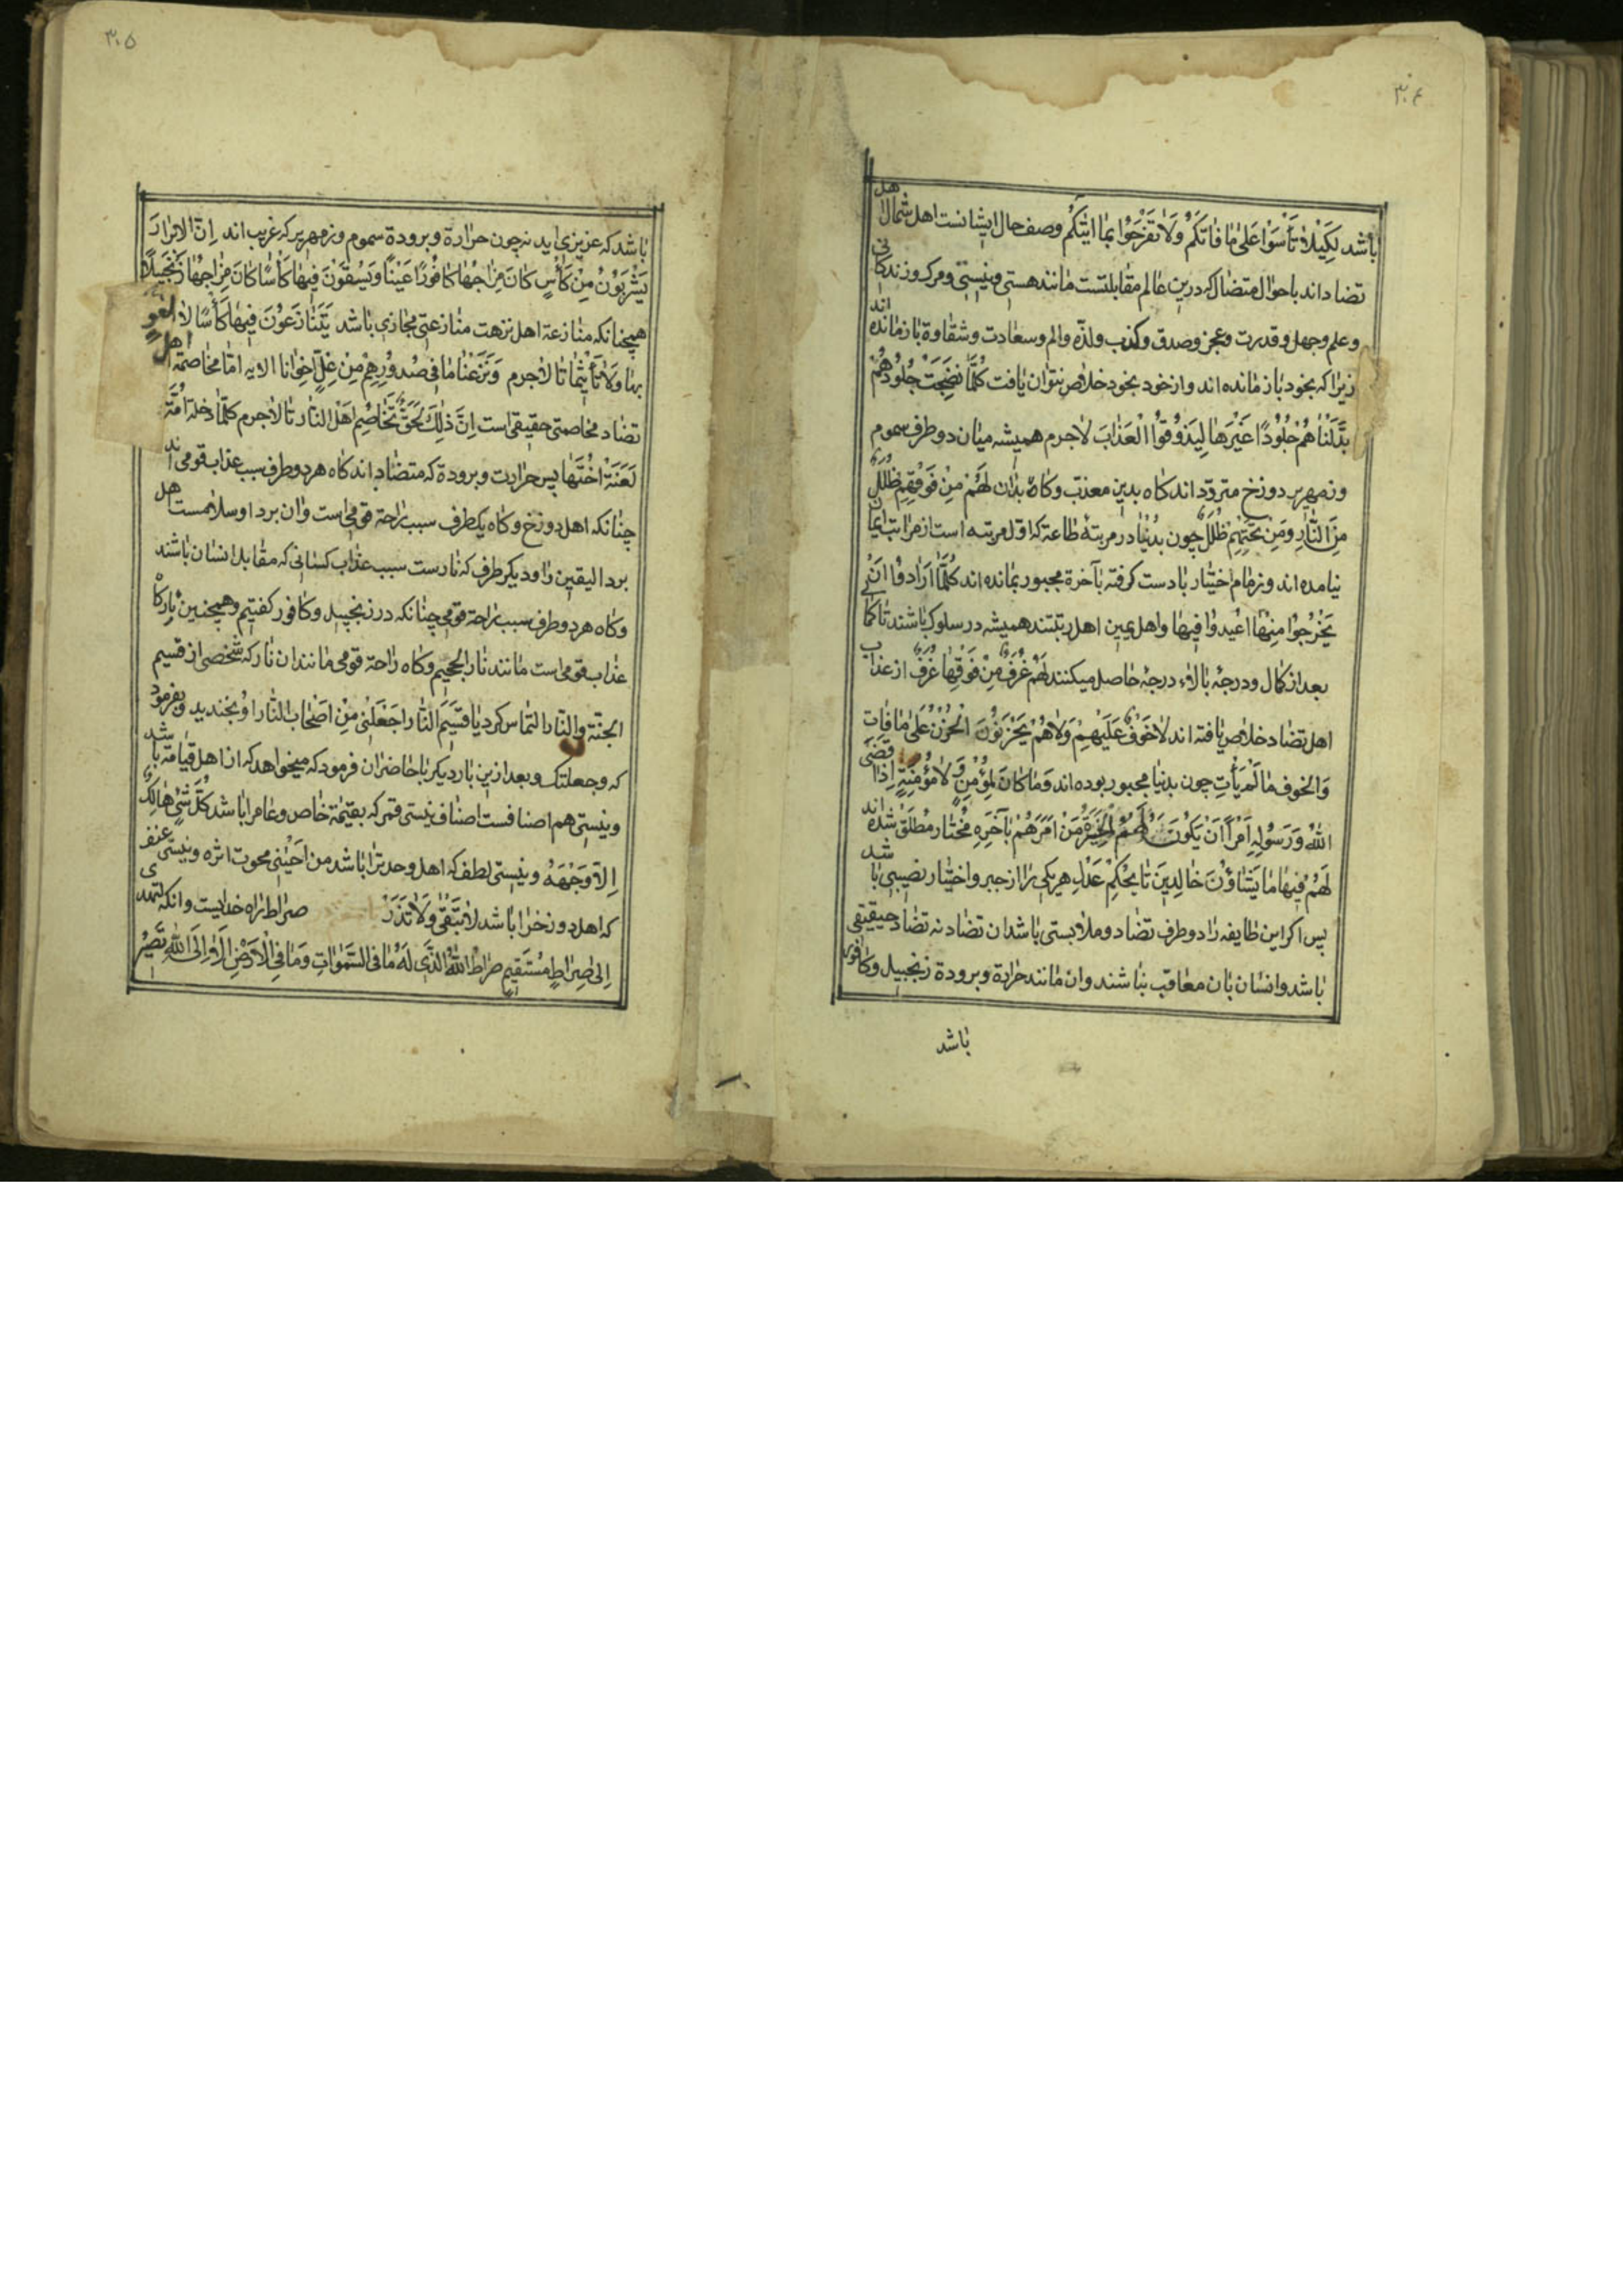 ۳۰۴
باشد لِكَيْلا تَأْسَوْا عَلىٰ مٰا فٰاتَكُمْ وَلاٰ تَفْرَحُوا بِمٰا اٰتيٰكُمْ وصف حال ایشانست اهل شمال اهل
تضاد اند باحوال متضاد که درین عالم مقابلتست مانند هستی و نیستی و مرک و زندکانی
و علم و جهل و قدرت و عجز و صدق و کذب و لذّه و الم و سعادت و شقاوة بازمانده اند
زیرا که بخود بازمانده اند و از خود بخود خلاص نتوان یافت كُلَّمٰا نَضِجَتْ جُلُودُهُمْ
بَدَّلْنٰاهُمْ جُلُودًا غَيْرَهٰا لِيَذُوقُوا الْعَذٰابَ لاجرم همیشه میان دو طرف سموم
و زمهریر دوزخ متردّد اند کاه بدین معذب و کاه بدان لَهُمْ مِنْ فَوْقِهِمْ ظُلَلٌ
مِنَ النّٰارِ وَمِنْ تَحْتِهِمْ ظُلَلٌ چون بدنیا در مرتبهٔ طاعة که اول مرتبه است از مراتب ایمان
نیامده اند و زمام اختیار بادست کرفته بآخرة مجبور بمانده اند كُلَّمٰا اَرٰادُوا اَنْ
يَخْرُجُوا مِنْهٰا اُعيدُوا فيهٰا و اهل یمین اهل ترتبند همیشه در سلوک باشند تا کمالی
بعد از کمال و درجهٔ بالاء درجهٔ حاصل میکنند لَهُمْ غُرَفٌ مِنْ فَوْقِهٰا غُرَفٌ از عذاب
اهل تضاد خلاص یافته اند لاٰ خَوْفٌ عَلَيْهِمْ وَلاٰ هُمْ يَحْزَنُونَ الْحُزْنُ عَلىٰ مٰا فٰاتَ
وَالخوف مٰا لَمْ يَأْتِ چون بدنیا مجبور بوده اند وَمٰا كٰانَ لِمُؤْمِنٍ وَلاٰ مُؤْمِنَةٍ اِذٰا قَضَى
اللّٰهُ وَرَسُولُهُ اَمْرًا اَنْ يَكُونَ لَهُمُ الْخِيَرَةُ مِنْ اَمْرِهِمْ بآخره مختار مطلق شده اند
لَهُمْ فيهٰا مٰا يَشٰاؤُنَ خٰالِدينَ تا بحکم عدل هر یکی را از جبر و اختیار نصیبی باشد
پس اکر این طایفه را دو طرف تضاد و ملابستی باشد آن تضاد نه تضاد حقیقی
باشد و انسان بان معاقب نباشند و ان مانند حرارة و برودة زنجبیل و کافور
باشد
۳۰۵
باشد که عزیزی اید نه چون حرارة و برودة سموم و زمهریر که غریب اند اِنَّ الْاَبْرٰارَ
يَشْرَبُونَ مِنْ كَأْسٍ كٰانَ مِزٰاجُهٰا كٰافُورًا عَيْنًا وَيُسْقَوْنَ فيهٰا كَأْسًا كٰانَ مِزٰاجُهٰا زَنْجَبيلًا
همچنانکه منازعة اهل نزهت منازعتی مجازی باشد يَتَنٰازَعُونَ فيهٰا كَأْسًا لاٰ لَغْوٌ
بهٰا وَلاٰ تَأْثيمٌ تا لاجرم وَنَزَعْنٰا مٰا فى صُدُورِهِمْ مِنْ غِلٍّ اِخْوٰانًا الایه امّا مخاصمة اهل
تضاد مخاصمتی حقیقی است اِنَّ ذٰلِكَ لَحَقٌّ تَخٰاصُمُ اَهْلِ النّٰارِ تا لاجرم كلّما دخلت اُمَّةٌ
لَعَنَتْ اُخْتَهٰا پس حرارت و برودة که متضاد اند کاه هر دو طرف سبب عذاب قومی اند
چنانکه اهل دوزخ و کاه یکطرف سبب راحة قومی است و ان بردا و سلامست اهل
برد الیقین را و دیکر طرف که نارست سبب عذاب کسانی که مقابل انسان باشند
و کاه هر دو طرف سبب راحة قومی چنانکه در زنجبیل و کافور کفتیم و همچنین نار کاه
عذاب قومی است مانند نار الجحیم و کاه راحة قومی مانند ان نار که شخصی از قسیم
الجنّة والنّار التماس کرد یا قسیم النّار اجعلنی من اصحاب النّار او بخندید و بفرمود
که و جعلتک و بعد ازین بار دیکر با حاضران فرمود که میخواهد که از اهل قیامة باشد
و نیستی هم اصنافست اصناف نیستی قهر که بقیمة خاص و عام را باشد كُلُّ شَيْءٍ هٰالِكٌ
اِلاّٰ وَجْهَهُ و نیستی لطف که اهل وحدت را باشد من احبّنی محوت اثره و نیستی عنف
که اهل دوزخ را باشد لاٰ تُبْقى وَلاٰ تَذَرُ صراط راه خدایست وانکه لتهدی
اِلىٰ صِرٰاطٍ مُسْتَقيمٍ صِرٰاطِ اللّٰهِ الَّذى لَهُ مٰا فِى السَّمٰوٰاتِ وَمٰا فِى الْاَرْضِ اَلاٰ اِلَى اللّٰهِ تَصيرُ